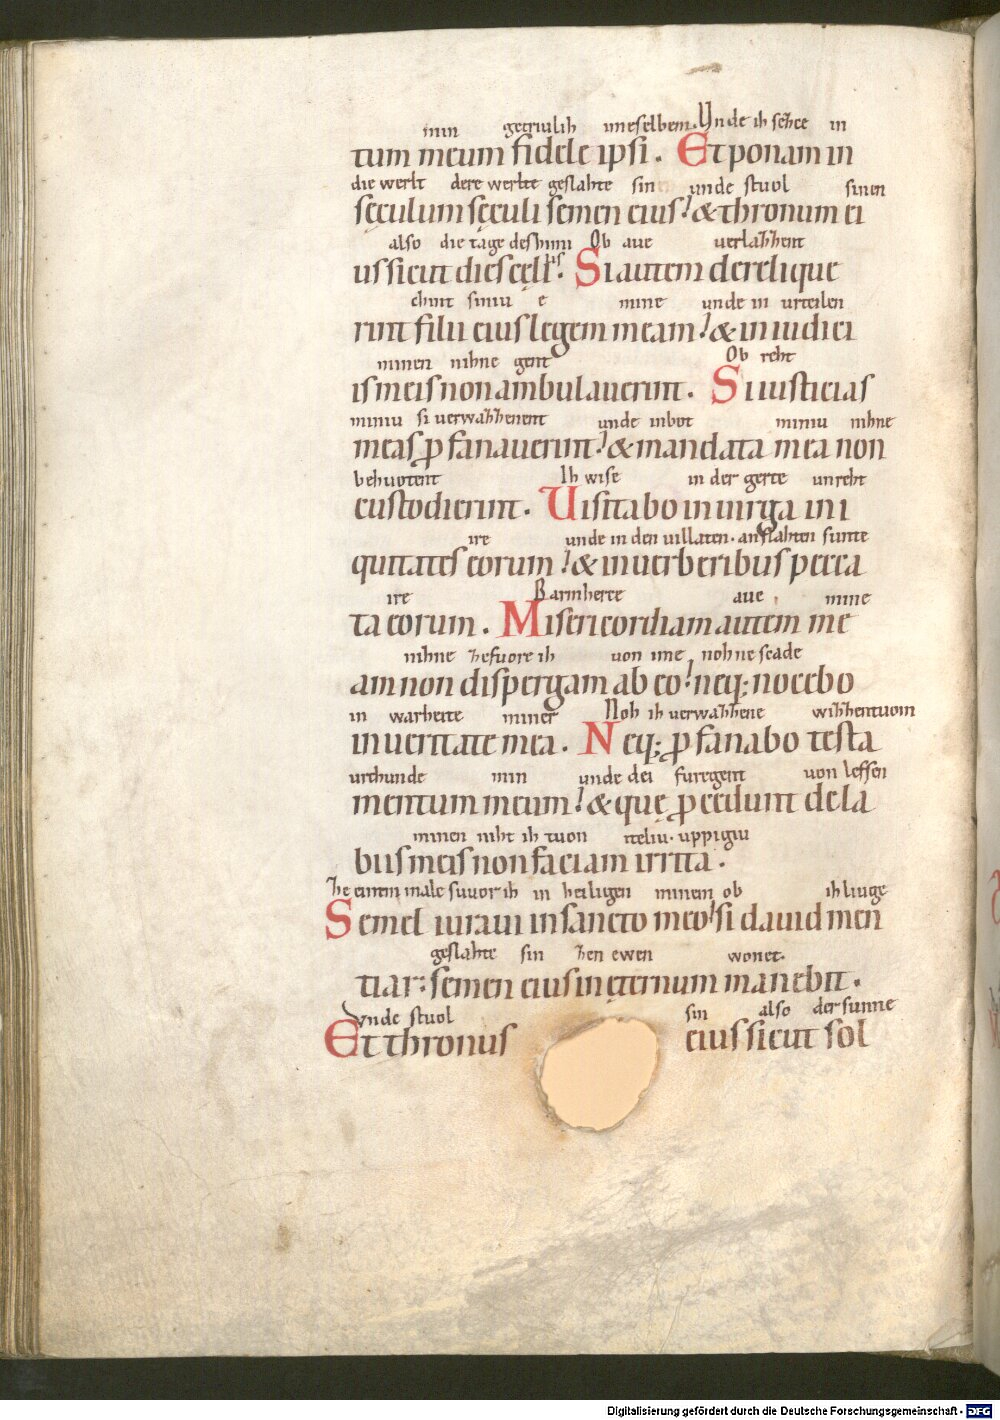 min getriulih imeselbem. Unde ih setze in
tum meum fidele ipsi. Et ponam in
die werlt dere werlte geslahte sin unde stuol sinen
sęculum sęculi semen eius! & thronum ei
also die tage deshimi Ob aue verlazzent
us sicut dies cęli. Si autem derelique
chint siniu e mine unde in urteilen
rint filii eius legem meam! & in iudici
minen nihne gent Ob reht
is meis non ambulauerint. Si iusticias
miniu si verwazzenent unde inbot miniu nihne
meas ꝓfanauerint! & mandata mea non
behuotent Ih wise in der gerte unreht
custodierint. Uisitabo in uirga ini
ire unde in den uillaten. anslahten sunte
quitates eorum! & in uerberibus pecca
ire Barmherte aue mine
ta eorum. Misericordiam autem me
nihne zefuore ih von ime noh ne scade
am non dispergam ab eo! neq; nocebo
in warheite miner Noh ih verwazzene wizzentuom
in ueritate mea. Neq; ꝓfanabo testa
urchunde min unde dei furegent von leffen
mentum meum! & quę ꝓcedunt de la
minen niht ih tuon iteliu. uppigiu
biis meis non faciam irrita.
Ze einem male suuor ih in heiligen minem ob ih liuge
Semel iuraui in sancto meo! si dauid men
geslahte sin zen ewen wonet.
tiar: semen eius in ęternum manebit.
Unde stuol sin also der sunne
Et thronus eius sicut sol
Digitalisierung gefördert durch die Deutsche Forschungsgemeinschaft - DFG